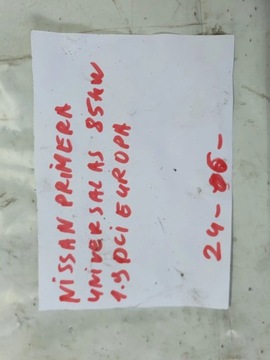 NISSAN PRIMERA
UNIVERSALAS 85KW
1.9 DCI EUROPA
24-06-